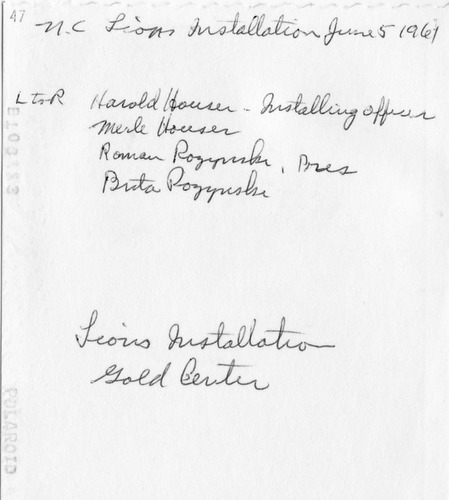 47
N.C Lions Installation June 5 1961
L to R Harold Houser - Installing officer
Merle Houser
Roman Rozynski, Pres
Rozynski
Lions Installation
Gold Center
POLAROID